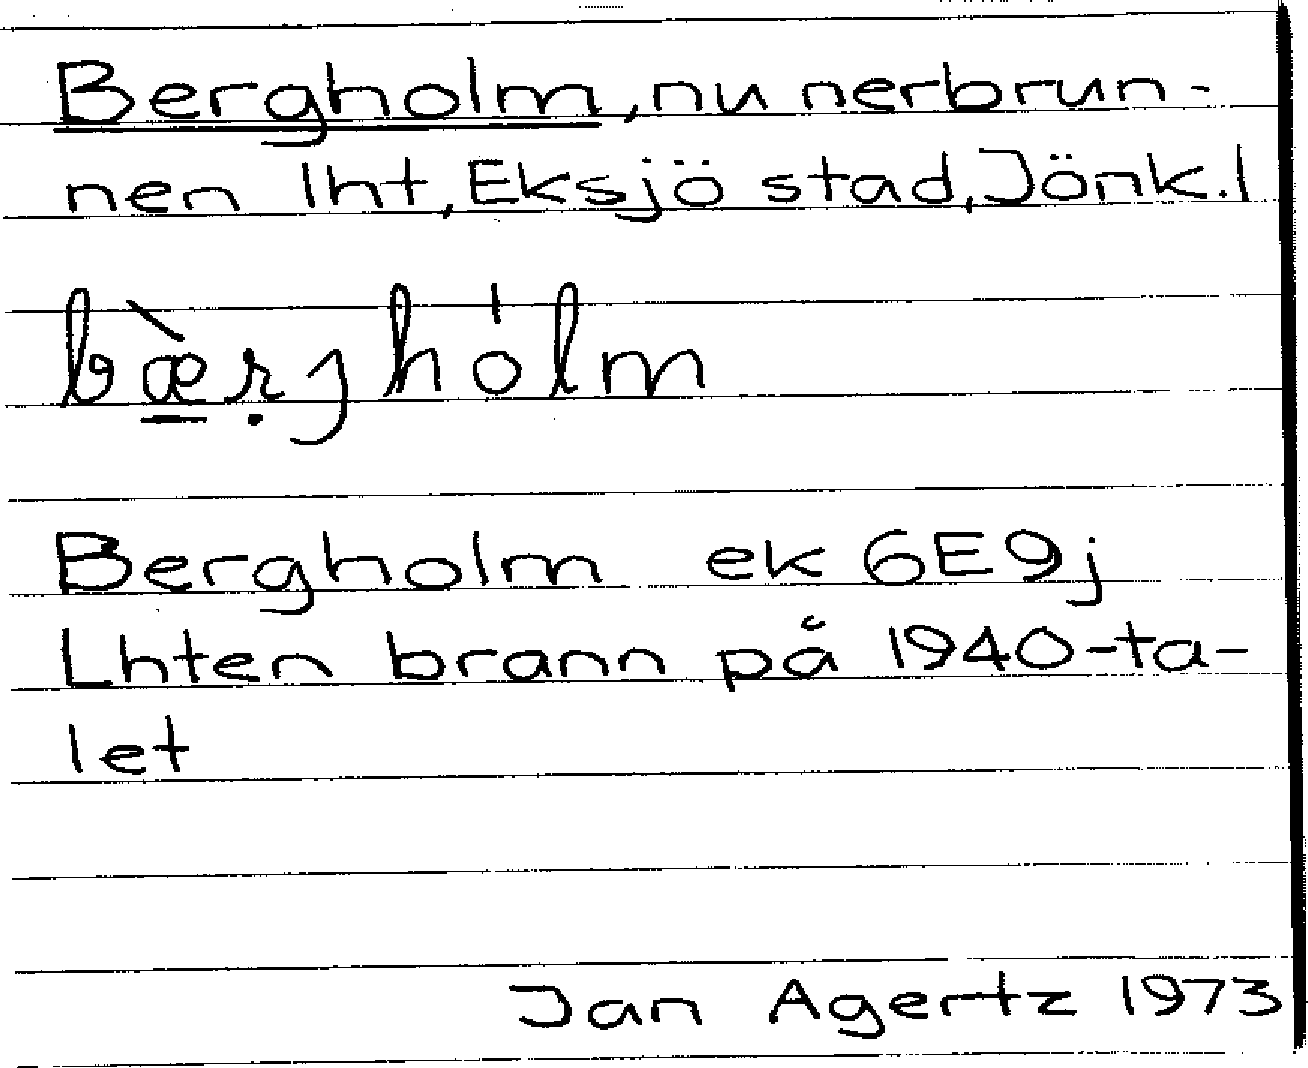 Bergholm, nu nerbrun-
nen lht, Eksjö stad, Jönk. l
bæ̲̀rjhol̍m
Bergholm ek 6E9j
Lhten brann på 1940-ta-
let
Jan Agertz 1973